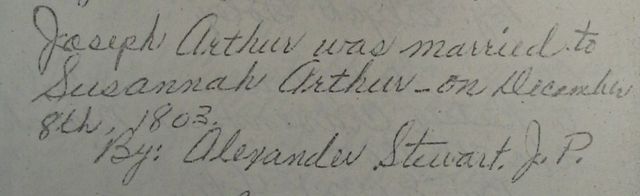 Joseph Arthur was married to
Susannah Arthur - on December
8th, 1803.
By: Alexander Stewart. J. P.